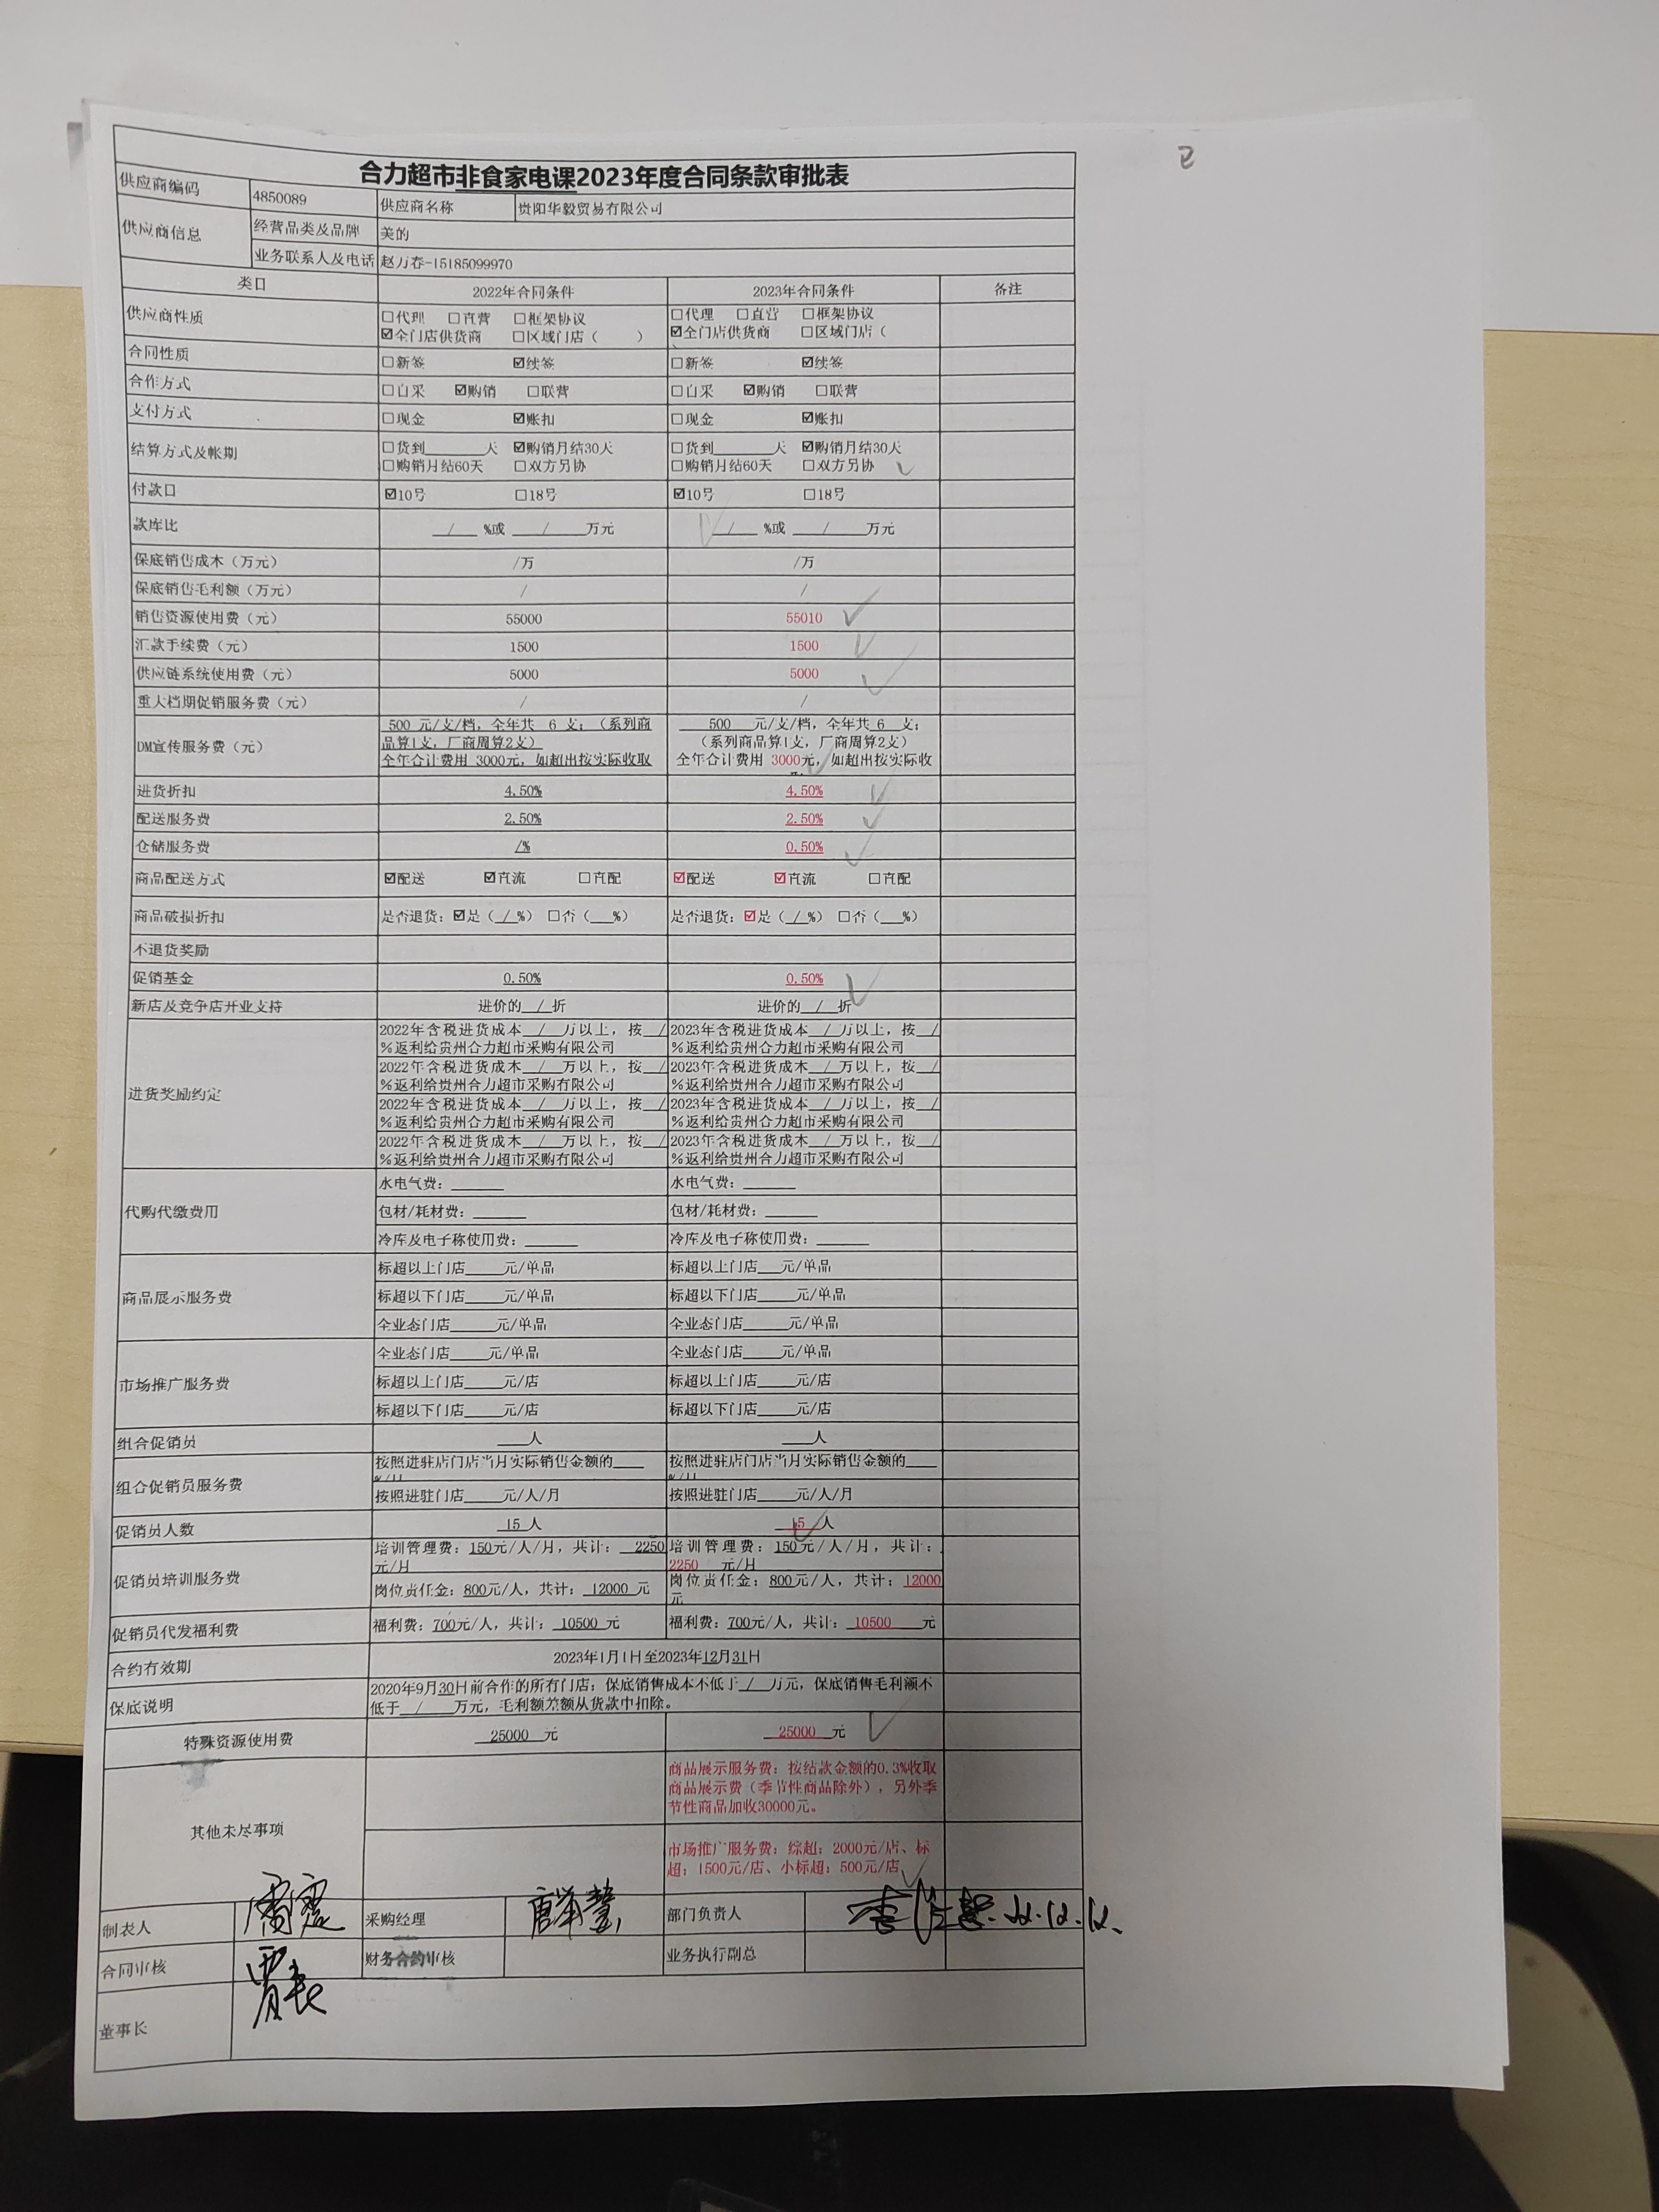 合力超市非食家电课2023年度合同条款审批表
供应商编码 4850089 供应商名称 贵阳华毅贸易有限公司
供应商信息 经营品类及品牌 美的
业务联系人及电话 赵万春-15185099970
类目 2022年合同条件 2023年合同条件 备注
供应商性质 □代理 □直营 □框架协议 □代理 □直营 □框架协议
☑全门店供货商 □区域门店（ ） ☑全门店供货商 □区域门店（
合同性质 □新签 ☑续签 □新签 ☑续签
合作方式 □自采 ☑购销 □联营 □自采 ☑购销 □联营
支付方式 □现金 ☑账扣 □现金 ☑账扣
结算方式及帐期 □货到____天 ☑购销月结30天 □货到____天 ☑购销月结30天
□购销月结60天 □双方另协 □购销月结60天 □双方另协
付款日 ☑10号 □18号 ☑10号 □18号
款库比 / %或 / 万元 / %或 / 万元
保底销售成本（万元） /万 /万
保底销售毛利额（万元） / /
销售资源使用费（元） 55000 55010
汇款手续费（元） 1500 1500
供应链系统使用费（元） 5000 5000
重大档期促销服务费（元） / /
DM宣传服务费（元） 500 元/支/档，全年共 6 支；（系列商品算1支，厂商周算2支） 500 元/支/档，全年共 6 支；（系列商品算1支，厂商周算2支）
全年合计费用 3000元，如超出按实际收取 全年合计费用 3000元，如超出按实际收
进货折扣 4.50% 4.50%
配送服务费 2.50% 2.50%
仓储服务费 /% 0.50%
商品配送方式 ☑配送 ☑直流 □直配 ☑配送 ☑直流 □直配
商品破损折扣 是否退货：☑是（ / %） □否（___%） 是否退货：☑是（ / %） □否（___%）
不退货奖励
促销基金 0.50% 0.50%
新店及竞争店开业支持 进价的 / 折 进价的 / 折
进货奖励约定 2022年含税进货成本 / 万以上，按 / %返利给贵州合力超市采购有限公司 2023年含税进货成本 / 万以上，按 / %返利给贵州合力超市采购有限公司
2022年含税进货成本 / 万以上，按 / %返利给贵州合力超市采购有限公司 2023年含税进货成本 / 万以上，按 / %返利给贵州合力超市采购有限公司
2022年含税进货成本 / 万以上，按 / %返利给贵州合力超市采购有限公司 2023年含税进货成本 / 万以上，按 / %返利给贵州合力超市采购有限公司
2022年含税进货成本 / 万以上，按 / %返利给贵州合力超市采购有限公司 2023年含税进货成本 / 万以上，按 / %返利给贵州合力超市采购有限公司
代购代缴费用 水电气费：____ 水电气费：____
包材/耗材费：____ 包材/耗材费：____
冷库及电子称使用费：____ 冷库及电子称使用费：____
商品展示服务费 标超以上门店____元/单品 标超以上门店____元/单品
标超以下门店____元/单品 标超以下门店____元/单品
全业态门店____元/单品 全业态门店____元/单品
市场推广服务费 全业态门店____元/单品 全业态门店____元/单品
标超以上门店____元/店 标超以上门店____元/店
标超以下门店____元/店 标超以下门店____元/店
组合促销员 ____人 ____人
组合促销员服务费 按照进驻店门店当月实际销售金额的____%/月 按照进驻店门店当月实际销售金额的____%/月
按照进驻门店____元/人/月 按照进驻门店____元/人/月
促销员人数 15 人 15 人
促销员培训服务费 培训管理费：150元/人/月，共计： 2250 元/月 培训管理费：150元/人/月，共计： 2250 元/月
岗位责任金：800元/人，共计： 12000 元 岗位责任金：800元/人，共计：12000 元
促销员代发福利费 福利费：700元/人，共计： 10500 元 福利费：700元/人，共计： 10500 元
合约有效期 2023年1月1日至2023年12月31日
保底说明 2020年9月30日前合作的所有门店；保底销售成本不低于 / 万元，保底销售毛利额不
低于 / 万元，毛利额差额从货款中扣除。
特殊资源使用费 25000 元 25000 元
其他未尽事项 商品展示服务费：按结款金额的0.3%收取
商品展示费（季节性商品除外），另外季
节性商品加收30000元。
市场推广服务费：综超：2000元/店、标
超：1500元/店、小标超：500元/店
制表人 采购经理 部门负责人 22.12.12.
合同审核 财务合约审核 业务执行副总
董事长